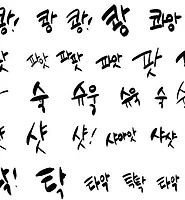 쾅! 쾅! 쾅 콰앙
팟 파팟 파앗 팟
슉 슈욱 슈욱 슉
샷 샷! 샤아앗 샤샷
탁 타악 탁탁 타악